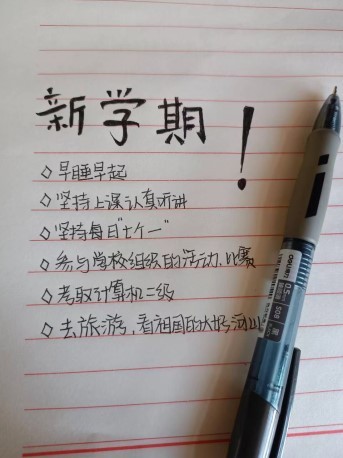 新学期！
◇早睡早起
◇坚持上课认真听讲
◇坚持每日“七个一”
◇参与学校组织的活动、比赛
◇考取计算机二级
◇去旅游，看祖国的大好河山
deli
0.5
S08